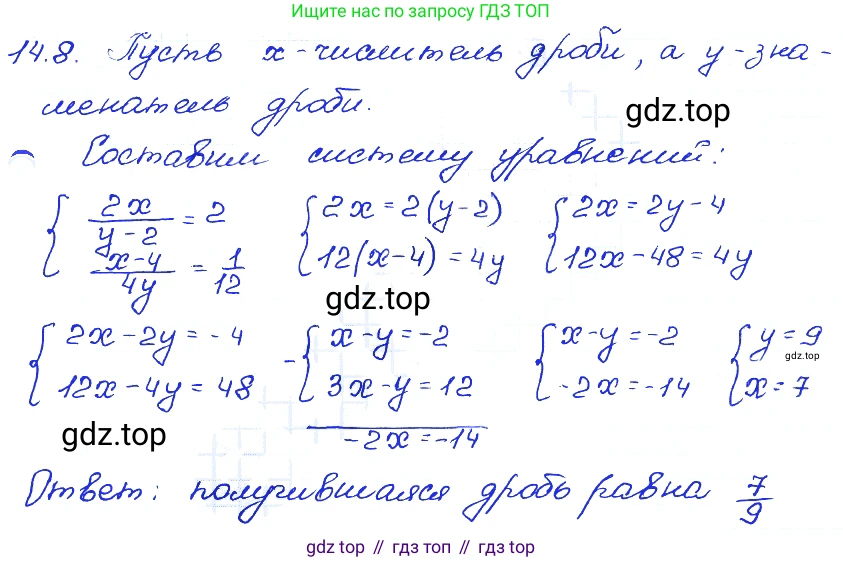 Ищите нас по запросу ГДЗ ТОП
14.8. Пусть x-числитель дроби, а y-зна-
менатель дроби.
gdz.top
Составим систему уравнений:
{ 2x/(y-2) = 2 { 2x = 2(y-2) { 2x = 2y-4
(x-4)/4y = 1/12 12(x-4) = 4y 12x-48 = 4y
gdz.top
{ 2x-2y = -4 - { x-y = -2 { x-y = -2 { y = 9
12x-4y = 48 3x-y = 12 -2x = -14 x = 7
gdz.top
-2x = -14
gdz.top
Ответ: получившаяся дробь равна 7/9
gdz top // гдз топ // gdz.top